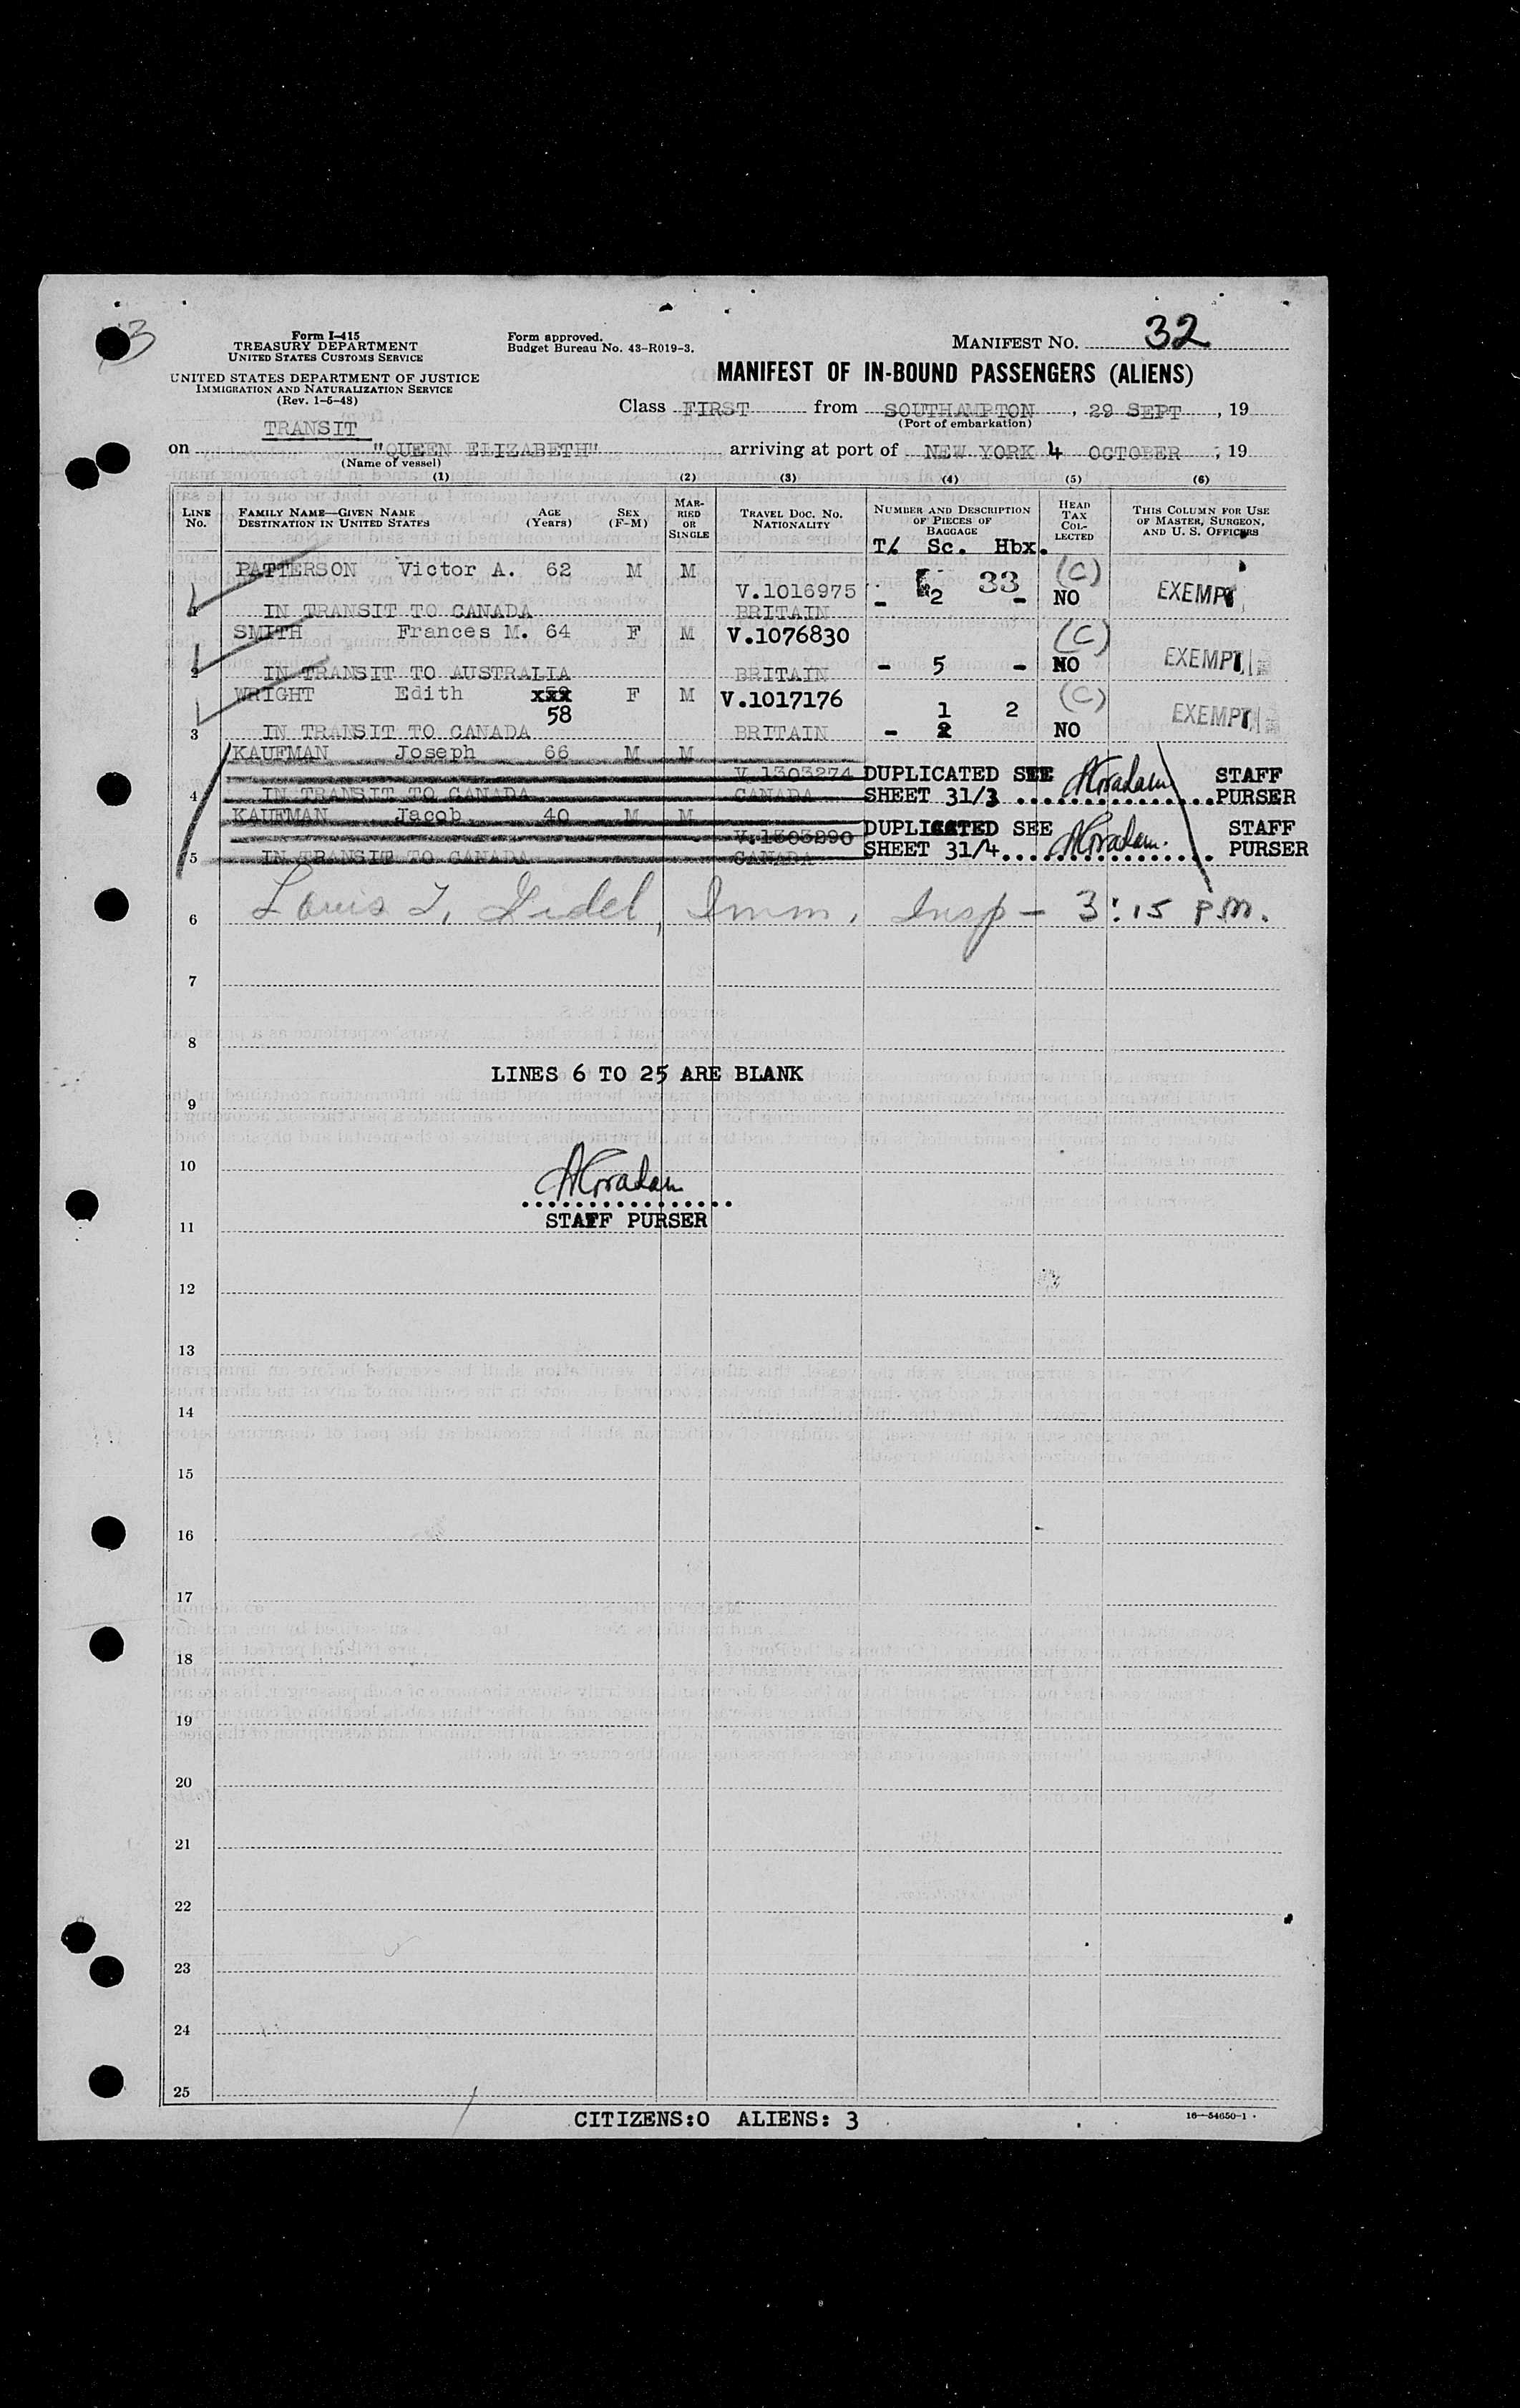 3
Form I-415
TREASURY DEPARTMENT
UNITED STATES CUSTOMS SERVICE
UNITED STATES DEPARTMENT OF JUSTICE
IMMIGRATION AND NATURALIZATION SERVICE
(Rev. 1-5-48)
Form approved.
Budget Bureau No. 43-R019-3.
MANIFEST NO. 32
MANIFEST OF IN-BOUND PASSENGERS (ALIENS)
Class FIRST from SOUTHAMPTON, 29 SEPT, 19
(Port of embarkation)
TRANSIT
on "QUEEN ELIZABETH" arriving at port of NEW YORK 4 OCTOBER, 19
(Name of vessel)
(1) (2) (3) (4) (5) (6)
LINE No. FAMILY NAME—GIVEN NAME DESTINATION IN UNITED STATES AGE (Years) SEX (F-M) MARRIED OR SINGLE TRAVEL DOC. NO. NATIONALITY NUMBER AND DESCRIPTION OF PIECES OF BAGGAGE HEAD TAX COLLECTED THIS COLUMN FOR USE OF MASTER, SURGEON, AND U. S. OFFICERS
T/ Sc. Hbx.
PATTERSON Victor A. 62 M M (C)
V.1016975 33 EXEMPT
1 IN TRANSIT TO CANADA BRITAIN - 2 - NO
SMITH Frances M. 64 F M V.1076830 (C)
2 IN TRANSIT TO AUSTRALIA BRITAIN - 5 - NO EXEMPT
WRIGHT Edith xxx F M V.1017176 (C)
58 1 2 EXEMPT
3 IN TRANSIT TO CANADA BRITAIN - 2 NO
KAUFMAN Joseph 66 M M
V.1303274 DUPLICATED SEE STAFF
4 IN TRANSIT TO CANADA CANADA SHEET 31/3 PURSER
KAUFMAN Jacob 40 M M
V.1303290 DUPLICATED SEE STAFF
5 IN TRANSIT TO CANADA CANADA SHEET 31/4 PURSER
6 Louis Imm. Insp - 3:15 P.M.
7
8
LINES 6 TO 25 ARE BLANK
9
10
STAFF PURSER
11
12
13
14
15
16
17
18
19
20
21
22
23
24
25
CITIZENS:0 ALIENS: 3
16—54650-1